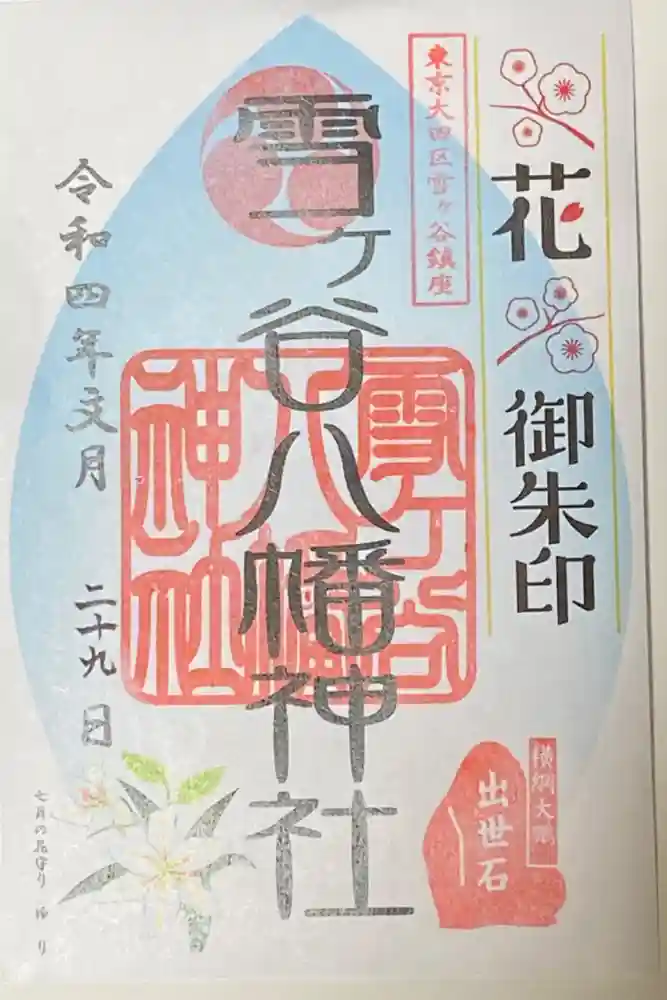 花
御朱印
東京大田区雪ヶ谷鎮座
雪ヶ谷八幡神社
雪ヶ谷
八幡
神社
横綱大鵬
出世石
令和四年文月
二十九日
七月の花守り ゆり